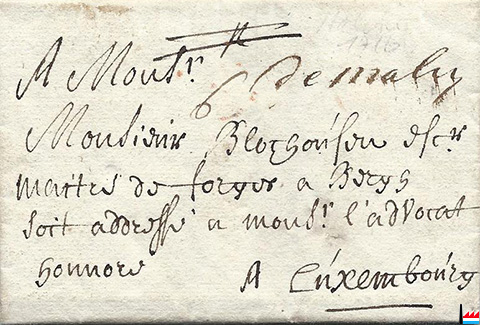 A Mons.r
6 de malry
Monsieur Blochousen esc.r
maitre de forges a Bergh
soit addressé a mons.r l'advocat
honnore
A Luxembourg